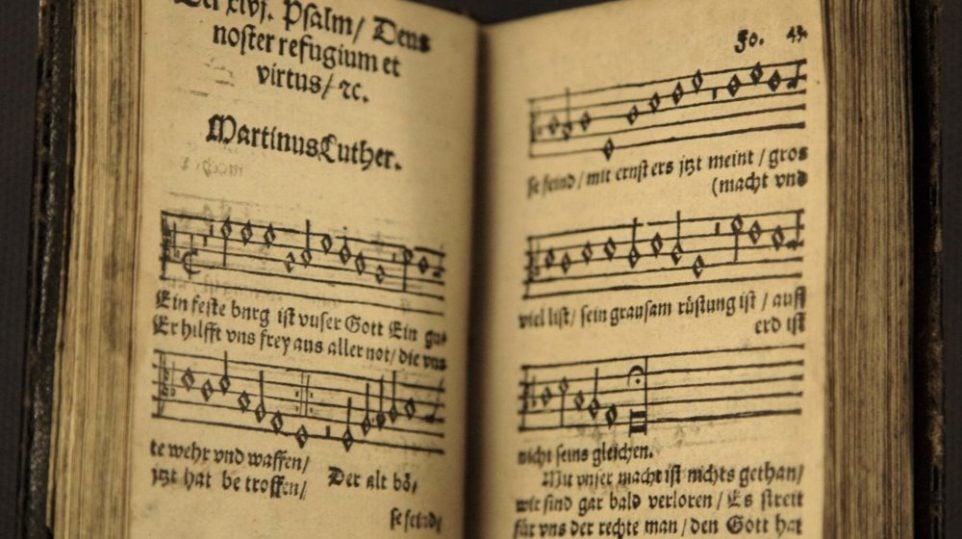 Der xlvj. Psalm/ Deus
noster refugium et
virtus/ ꝛc.
Martinus Luther.
Ein feste burg ist vnser Gott Ein gu-
Er hilfft vns frey aus aller not/ die vns
te wehr vnd waffen/ Der alt bö-
jtzt hat betroffen/
se feind/
Fo. 43.
se feind/ mit ernst ers jtzt meint / gros
(macht vnd
viel list/ sein grausam rüstung ist / auff
erd ist
nicht seins gleichen.
Mit vnser macht ist nichts gethan/
wir sind gar bald verloren / Es streit
für vns der rechte man / den Gott hat